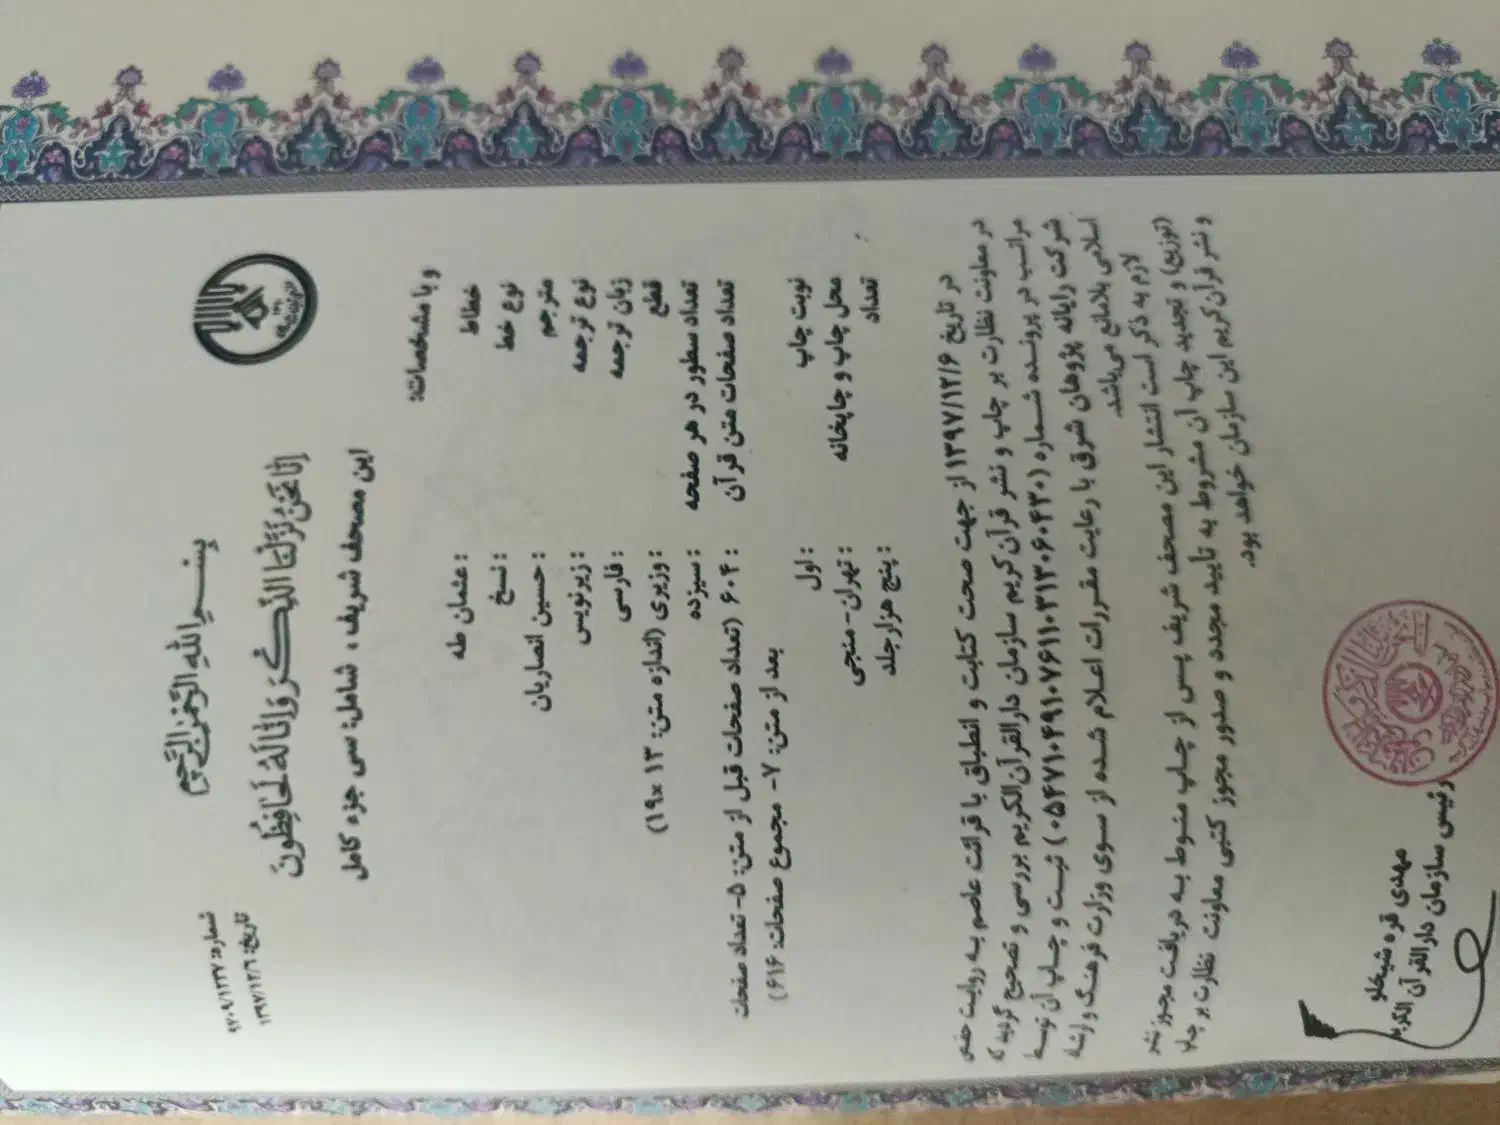 بِسْمِ اللهِ الرَّحْمٰنِ الرَّحِیمِ
اِنّا نَحْنُ نَزَّلْنَا الذِّكْرَ وَاِنّا لَهُ لَحَافِظُونَ
شماره: ۹۷۰۹/۱۲۳۷
تاریخ: ۱۳۹۷/۱۲/۶
این مصحف شریف ، شامل: سی جزء کامل
و با مشخصات:
خطاط : عثمان طه
نوع خط : نسخ
مترجم : حسین انصاریان
نوع ترجمه : زیرنویس
زبان ترجمه : فارسی
قطع : وزیری (اندازه متن: ۱۳ ×۱۹)
تعداد سطور در هر صفحه : سیزده
تعداد صفحات متن قرآن : ۶۰۴ (تعداد صفحات قبل از متن: ۵- تعداد صفحات
بعد از متن: ۷- مجموع صفحات: ۶۱۶)
نوبت چاپ : اول
محل چاپ و چاپخانه : تهران- منجی
تعداد : پنج هزار جلد
در تاریخ ۱۳۹۷/۱۲/۶ از جهت صحت کتابت و انطباق با قرائت عاصم به روایت حفص
در معاونت نظارت بر چاپ و نشر قرآن کریم سازمان دارالقرآن الکریم بررسی و تصحیح گردید که
مراتب در پرونده شماره (۰۵۴۷۱۰۴۹۱۰۷۶۱۱۰۳۱۳۰۶۰۴۳۰) ثبت و چاپ آن توسط
شرکت رایانه پژوهان شرق با رعایت مقررات اعلام شده از سوی وزارت فرهنگ و ارشاد
اسلامی بلامانع می‌باشد.
لازم به ذکر است انتشار این مصحف شریف پس از چاپ منوط به دریافت مجوز نشر
(توزیع) و تجدید چاپ آن مشروط به تأیید مجدد و صدور مجوز کتبی معاونت نظارت بر چاپ
و نشر قرآن کریم این سازمان خواهد بود.
مهدی قره شیخلو
رئیس سازمان دارالقرآن الکریم